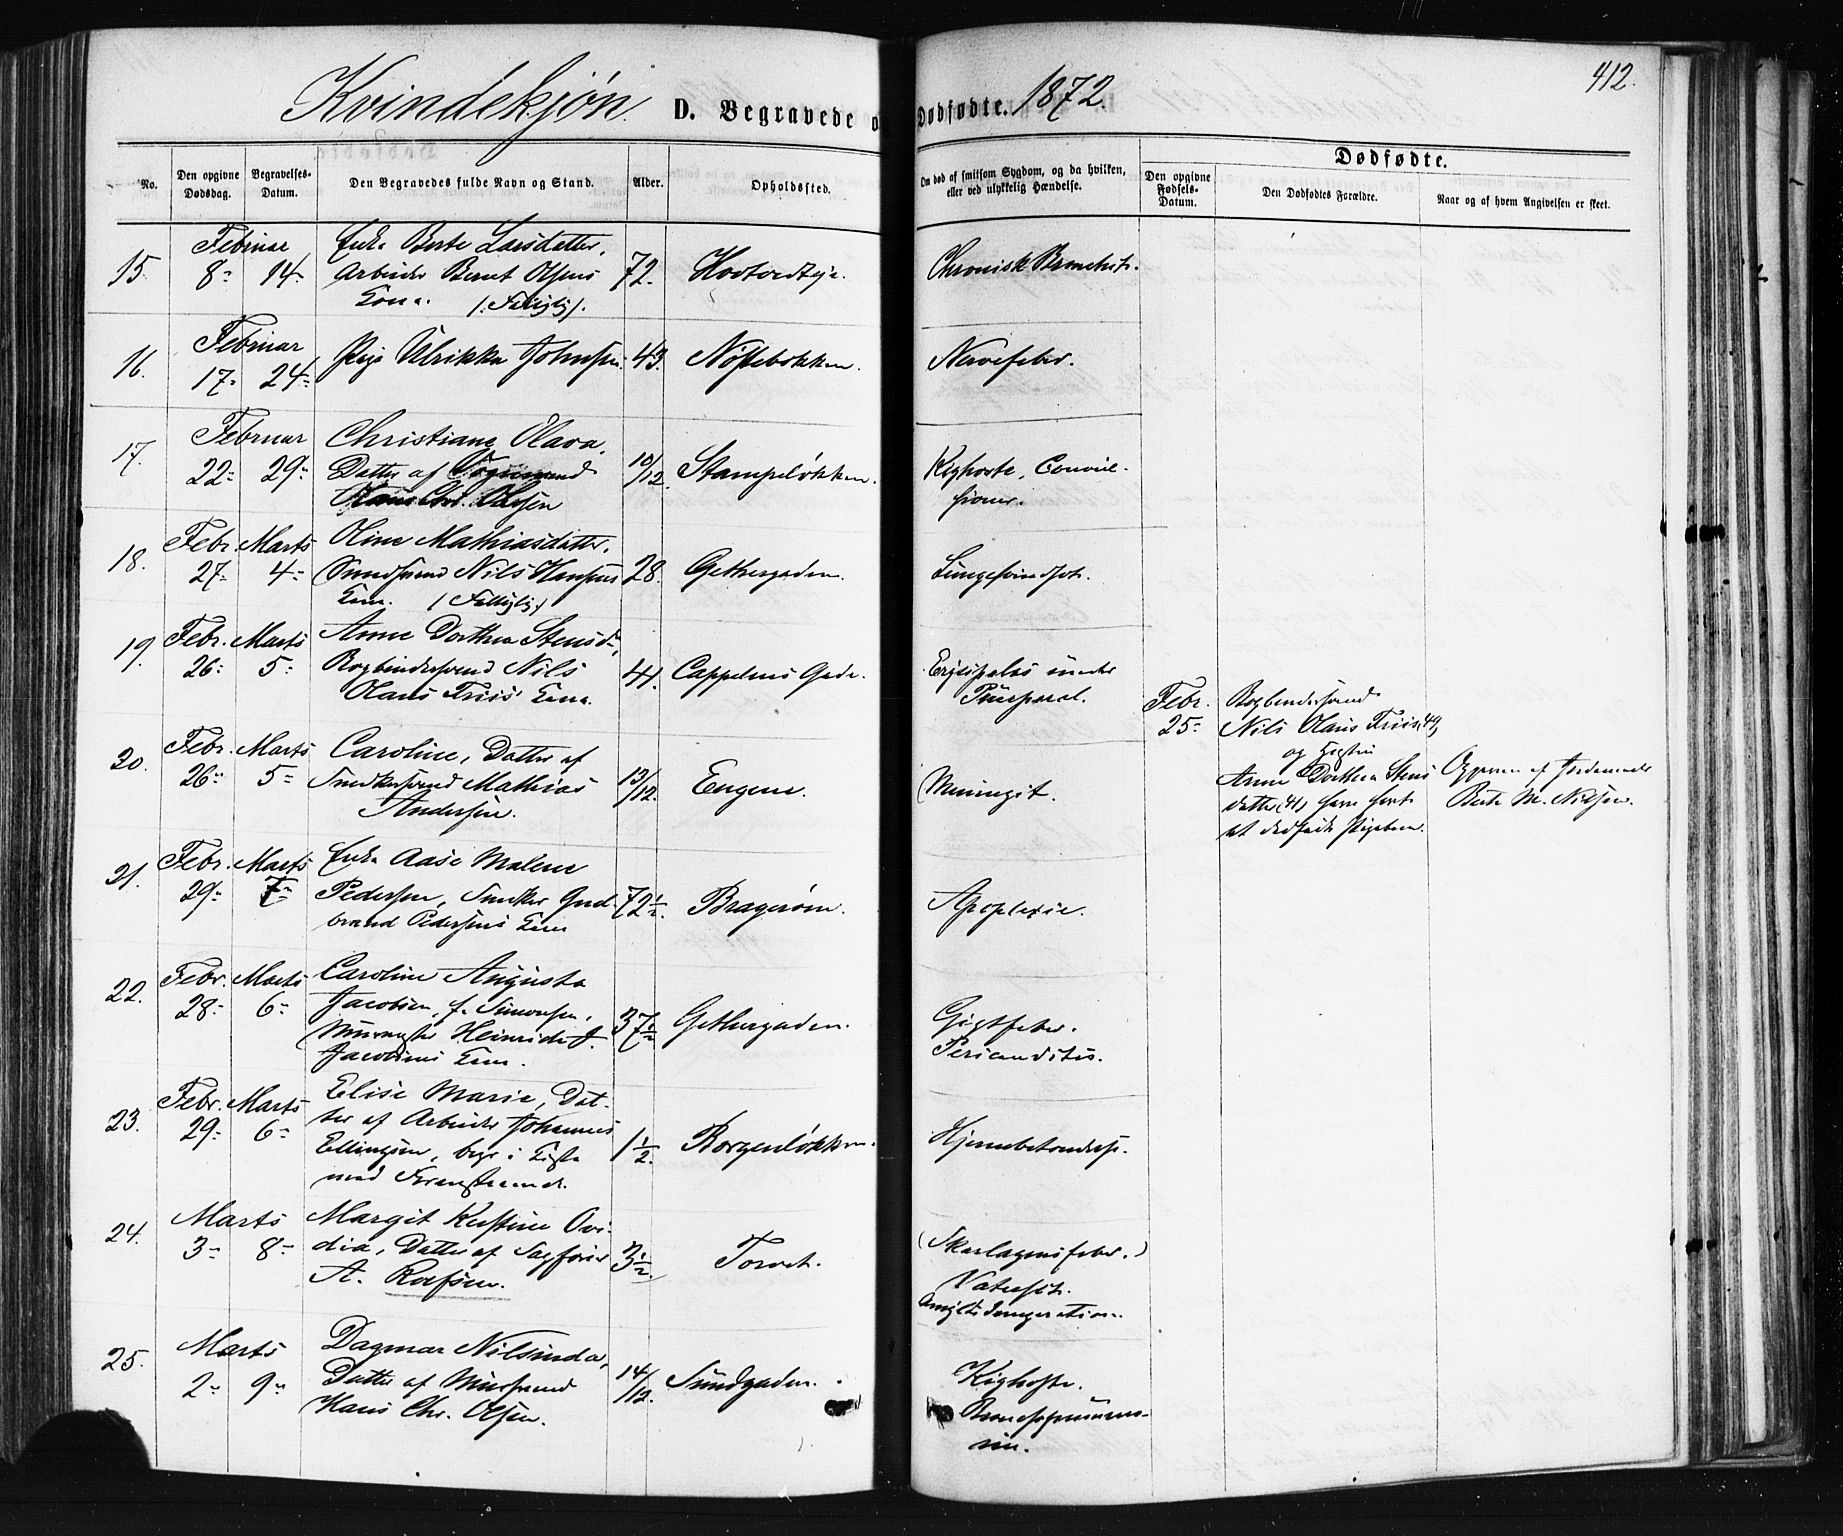 412.
Kvindekjøn. D. Begravede og Dødfødte. 1872.
No.
Den opgivne Dødsdag.
Begravelses-Datum.
Den Begravedes fulde Navn og Stand.
Alder.
Opholdssted.
Om død af smitsom Sygdom, og da hvilken, eller ved ulykkelig Hændelse.
Dødfødte.
Den opgivne Fødsels-Datum.
Den Dødfødtes Forældre.
Naar og af hvem Angivelsen er skeet.
15. Februar 8 14
Enke Berte Larsdatter,
Arbeider Bernt Olsens
Kone.
72.
Chronisk Bronchit.
16. Februar 17 24
Pige Ulrikka Johnsen
43.
Nøstebakken.
Nervefeber.
17. Februar 22 29
Christiane Olava,
Datter af
10/12.
Stampeløkken.
Kighoste, Convul-
sioner.
18. Febr. 27 Marts 4
Oline Mathiasdatter,
Nils Hansens
Kone.
28.
Gethergaden.
Lungesvindsot.
19. Febr. 26 Marts 5
Anne Dorthea Stensd.,
Bogbindersvend Nils
Olaus Friis' Kone.
41.
Cappelens Gade.
Erysipelas
Puerperal.
Febr. 25
Bogbindersvend
Nils Olaus Friis (49)
og Hustru
Anne Dorthea Stens
datter (41)
et dødfødt Pigebarn.
Opgiven af Jordemoder
Berte M. Nilsen.
20. Febr. 26 Marts 5
Caroline, Datter af
Snedkersvend Mathias
Andersen.
13/12.
Engene.
Meningit.
21. Febr. 29 Marts 7
Enke Aase Malene
Pedersen, Snedker Gud-
brand Pedersens Kone
72½.
Bragerøen.
Apoplexie.
22. Febr. 28 Marts 6
Caroline Augusta
Jacobsen, f. Simonsen,
Murmester Heinrich J.
Jacobsens Kone.
37½
Gethergaden.
Gigtfeber.
Pericarditis.
23. Febr. 29 Marts 6
Elise Marie, Dat-
ter af Arbeider Johannes
Ellingsen, begr. i Kiste
med
1½.
Borgenløkken.
Hjernebetændelse.
24. Marts 3 8
Margit Kirstine Ovi-
dia, Datter af Sagfører
A. Roksøen.
3½.
Torvet.
(Skarlagensfeber.)
25. Marts 2 9
Dagmar Nilsinda,
Datter af Mursvend
Hans Chr. Olsen.
14/12.
Sundgaden.
Kighoste.